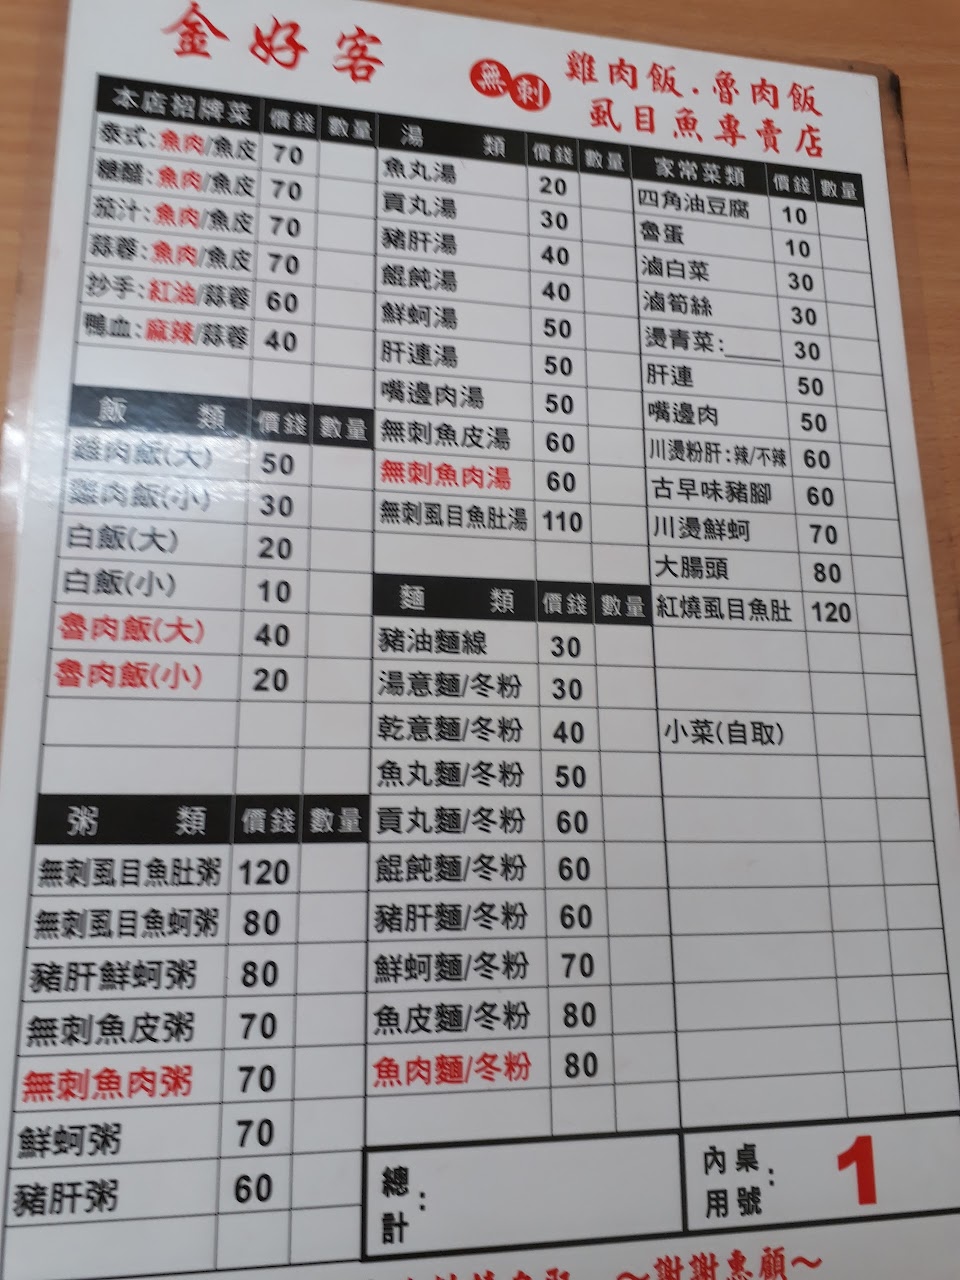 金好客
無刺
雞肉飯.魯肉飯
虱目魚專賣店
本店招牌菜 價錢 數量
泰式:魚肉/魚皮 70
糖醋:魚肉/魚皮 70
茄汁:魚肉/魚皮 70
蒜蓉:魚肉/魚皮 70
抄手:紅油/蒜蓉 60
鴨血:麻辣/蒜蓉 40
飯類 價錢 數量
雞肉飯(大) 50
雞肉飯(小) 30
白飯(大) 20
白飯(小) 10
魯肉飯(大) 40
魯肉飯(小) 20
粥類 價錢 數量
無刺虱目魚肚粥 120
無刺虱目魚蚵粥 80
豬肝鮮蚵粥 80
無刺魚皮粥 70
無刺魚肉粥 70
鮮蚵粥 70
豬肝粥 60
湯類 價錢 數量
魚丸湯 20
貢丸湯 30
豬肝湯 40
餛飩湯 40
鮮蚵湯 50
肝連湯 50
嘴邊肉湯 50
無刺魚皮湯 60
無刺魚肉湯 60
無刺虱目魚肚湯 110
麵類 價錢 數量
豬油麵線 30
湯意麵/冬粉 30
乾意麵/冬粉 40
魚丸麵/冬粉 50
貢丸麵/冬粉 60
餛飩麵/冬粉 60
豬肝麵/冬粉 60
鮮蚵麵/冬粉 70
魚皮麵/冬粉 80
魚肉麵/冬粉 80
家常菜類 價錢 數量
四角油豆腐 10
魯蛋 10
滷白菜 30
滷筍絲 30
燙青菜:____ 30
肝連 50
嘴邊肉 50
川燙粉肝:辣/不辣 60
古早味豬腳 60
川燙鮮蚵 70
大腸頭 80
紅燒虱目魚肚 120
小菜(自取)
總計:
內用桌號: 1
～謝謝惠顧～